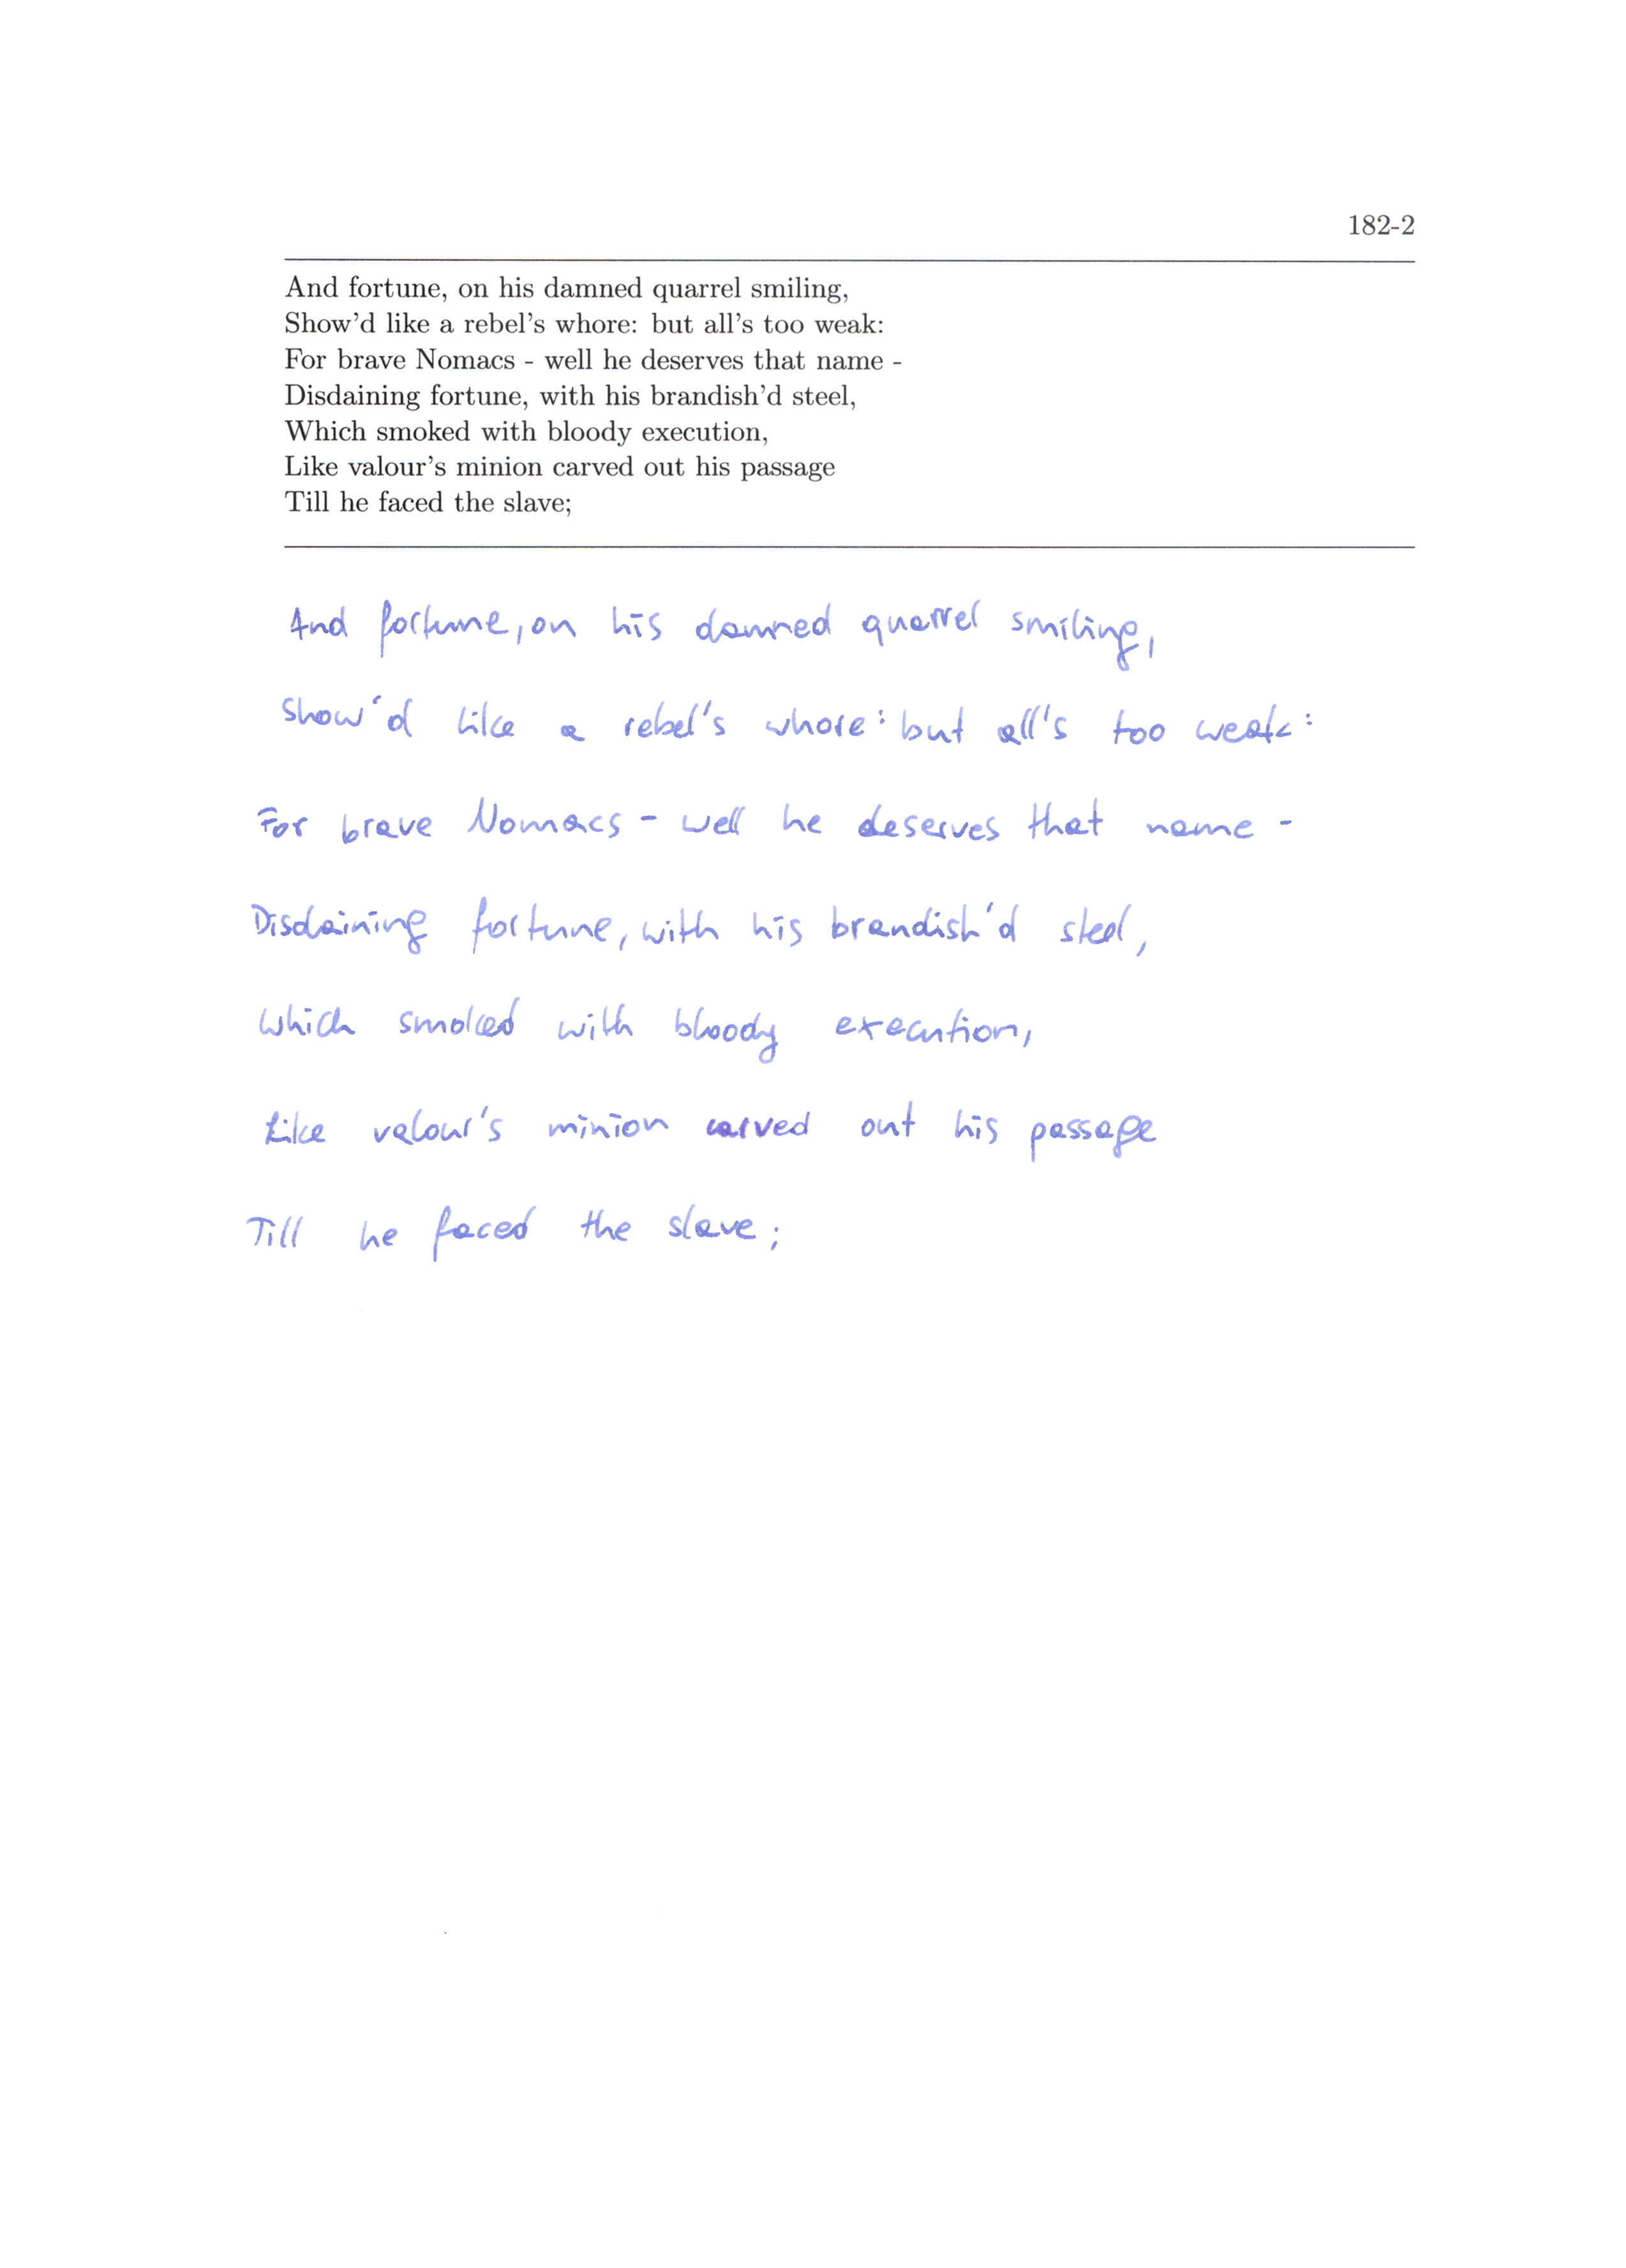 182-2
And fortune, on his damned quarrel smiling,
Show'd like a rebel's whore: but all's too weak:
For brave Nomacs - well he deserves that name -
Disdaining fortune, with his brandish'd steel,
Which smoked with bloody execution,
Like valour's minion carved out his passage
Till he faced the slave;
And fortune, on his damned quarrel smiling,
Show'd like a rebel's whore: but all's too weak:
For brave Nomacs - well he deserves that name -
Disdaining fortune, with his brandish'd steel,
Which smoked with bloody execution,
Like valour's minion carved out his passage
Till he faced the slave;